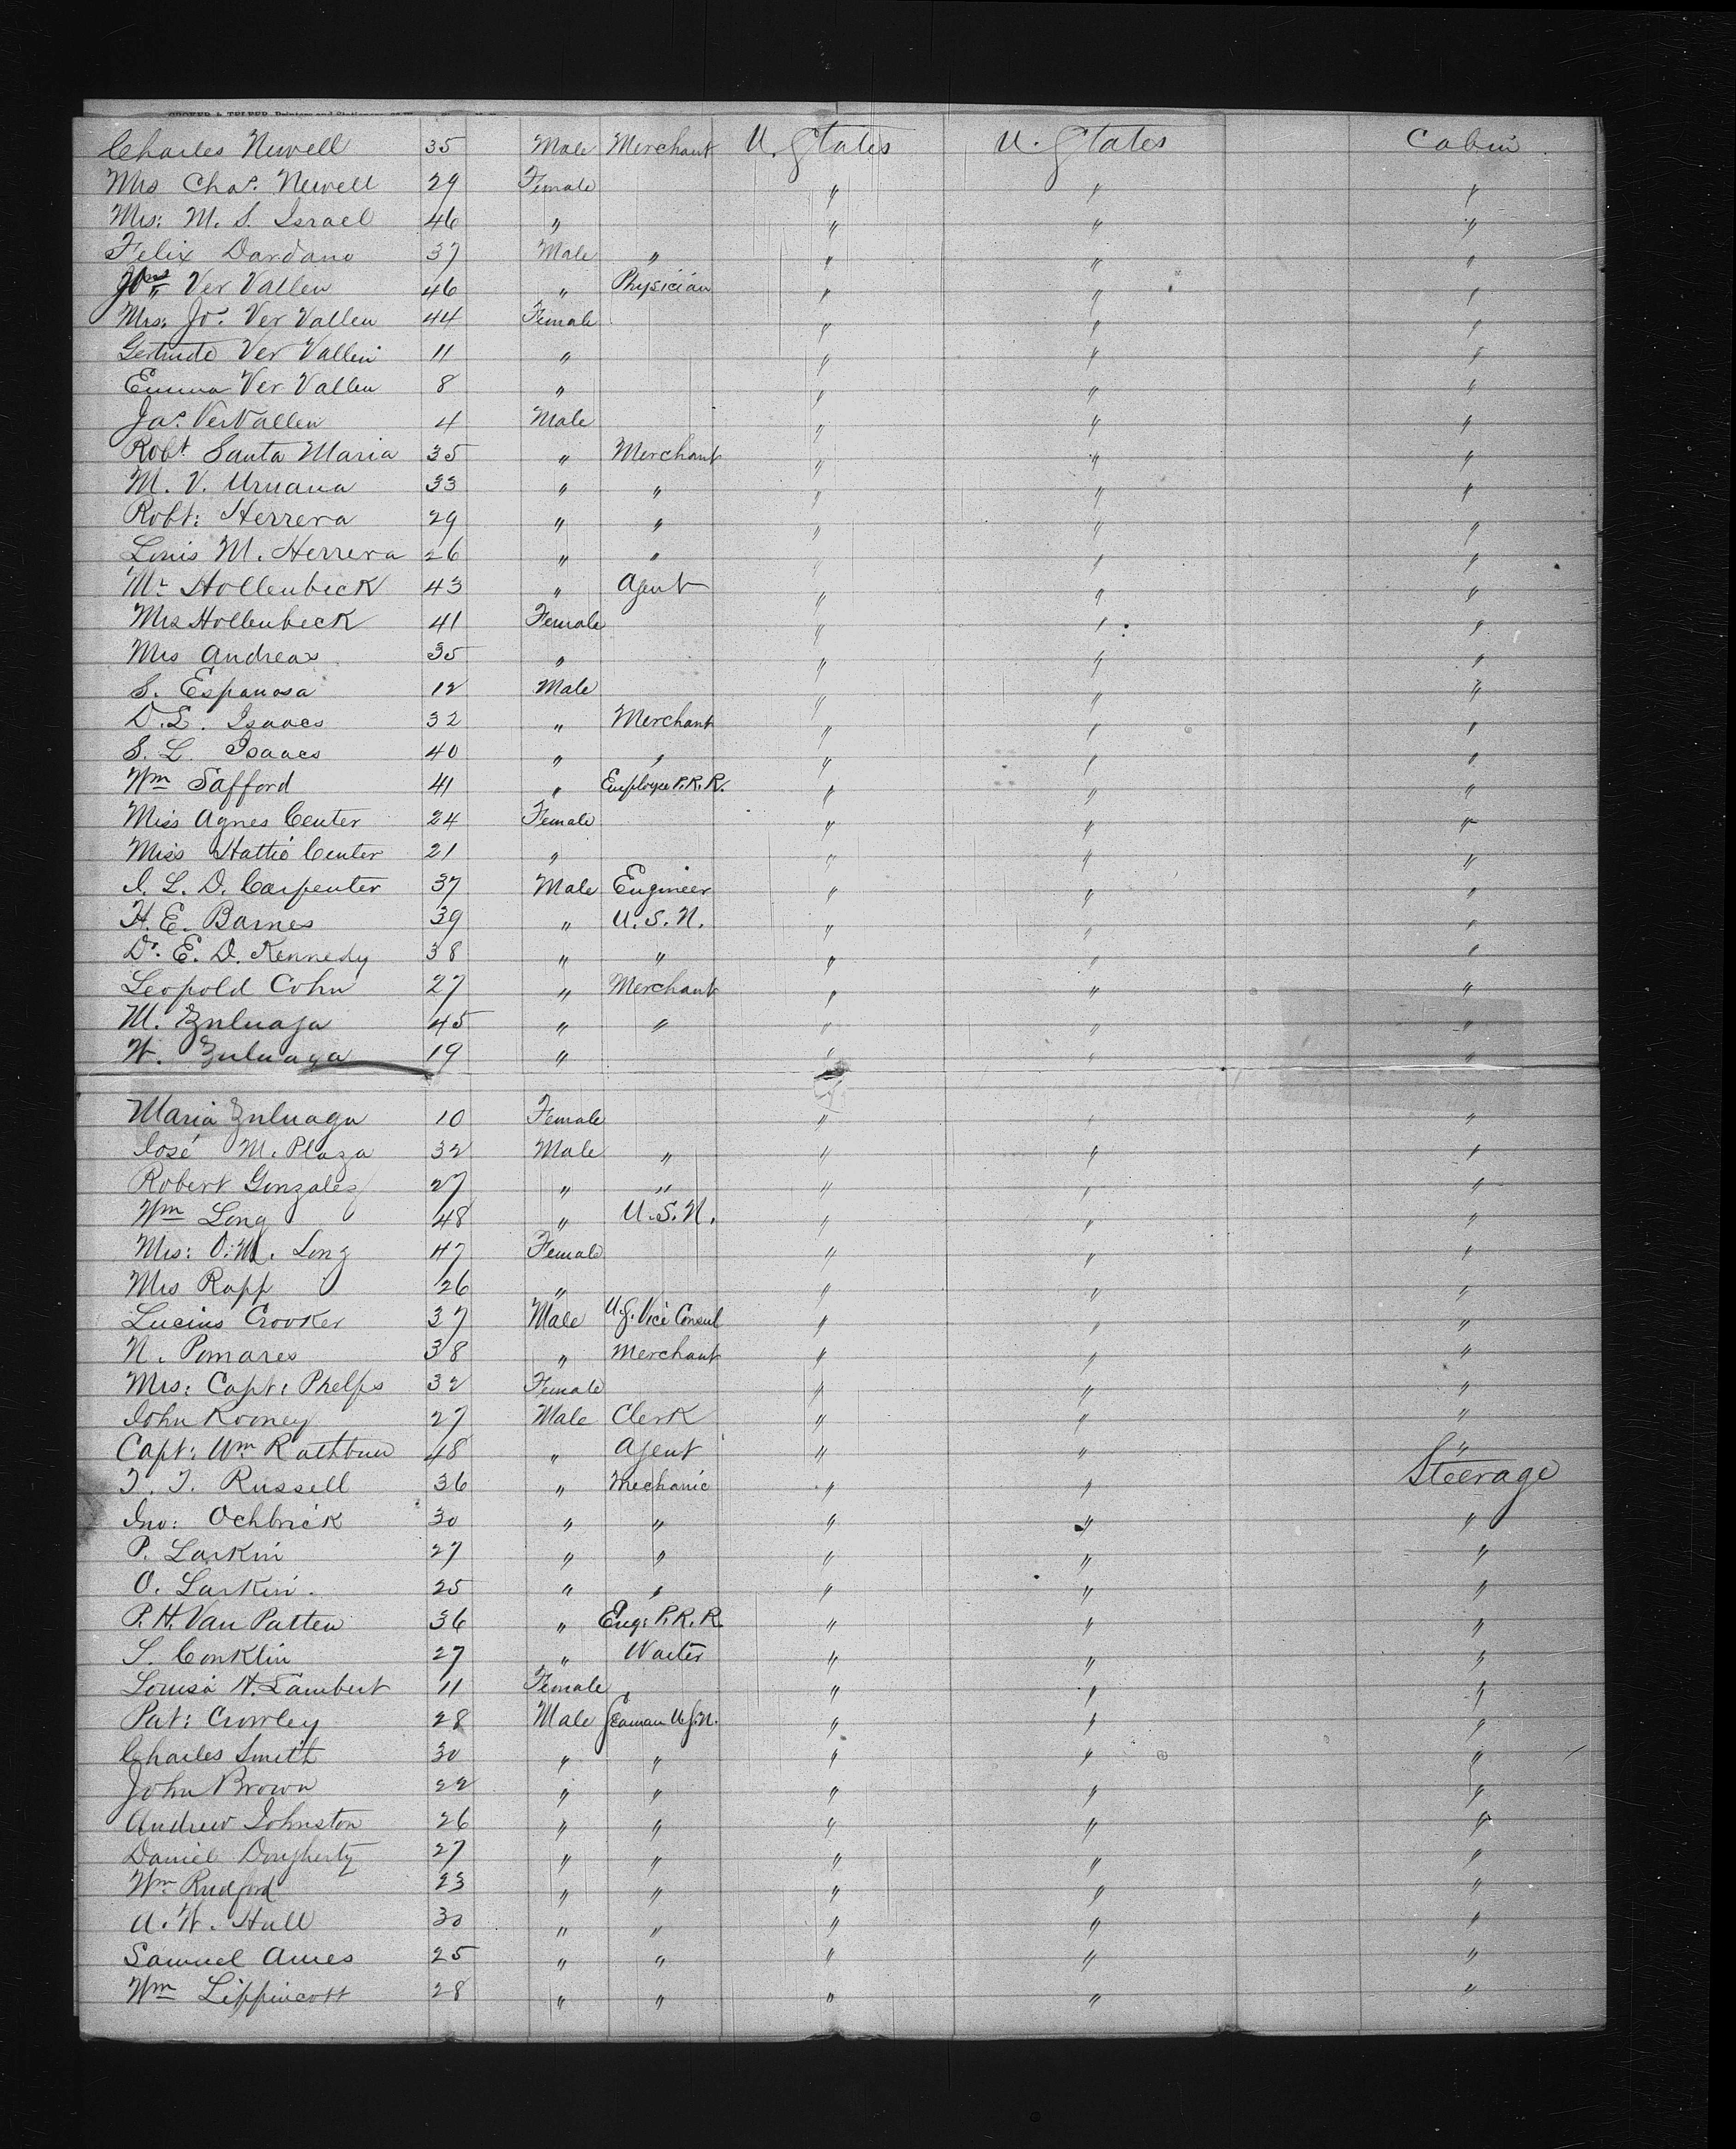 Charles Newell 35 Male Merchant U. States U. States Cabin
Mrs Chas. Newell 29 Female " " "
Mrs: M. S. Israel 46 " " " "
Felix Dardano 37 Male " " " "
Ver Vallen 46 " Physician " " "
Mrs: Jos. Ver Vallen 44 Female " " "
Gertrude Ver Vallen 11 " " " "
Emma Ver Vallen 8 " " " "
Jas. Ver Vallen 4 Male " " "
Robt. Santa Maria 35 " Merchant " " "
M. V. Uruana 33 " " " " "
Robt: Herrera 29 " " " " "
Louis M. Herrera 26 " " " " "
Mr. Hollenbeck 43 " Agent " " "
Mrs Hollenbeck 41 Female " " "
Mrs Andreas 35 " " " "
S. Espanosa 12 Male " " "
D. L. Isaacs 32 " Merchant " " "
S. L. Isaacs 40 " " " " "
Wm Safford 41 " Employee P.R.R. " " "
Miss Agnes Center 24 Female " " "
Miss Hattie Center 21 " " " "
I. L. D. Carpenter 37 Male Engineer " " "
H. E. Barnes 39 " U.S.N. " " "
Dr. E. D. Kennedy 38 " " " " "
Leopold Cohn 27 " Merchant " " "
M. Zuluaga 45 " " " " "
W. Zuluaga 19 " " " "
Maria Zuluaga 10 Female " " "
José M. Plaza 32 Male " " " "
Robert Gonzales 27 " " " " "
Wm Long 48 " U.S.N. " " "
Mrs: O. M. Long 47 Female " " "
Mrs Rapp 26 " " " "
Lucius Crooker 37 Male U.S. Vice Consul " " "
N. Pomares 38 " Merchant " " "
Mrs: Capt: Phelps 32 Female " " "
John Rooney 27 Male Clerk " " "
Capt: Wm Rathbun 48 " Agent " " "
T. T. Russell 36 " Mechanic " " Steerage
Jno: Ochbrick 30 " " " " "
P. Larkin 27 " " " " "
O. Larkin. 25 " " " " "
P. H. Van Patten 36 " Eng: P.R.R. " " "
S. Conklin 27 " Waiter " " "
Louisa H. Lambert 11 Female " " "
Pat: Crowley 28 Male Seaman U.S.N. " " "
Charles Smith 30 " " " " "
John Brown 22 " " " " "
Andrew Johnston 26 " " " " "
Daniel Dougherty 27 " " " " "
Wm Rudford 23 " " " " "
A. W. Hall 30 " " " " "
Samuel Ames 25 " " " " "
Wm Lippincott 28 " " " " "